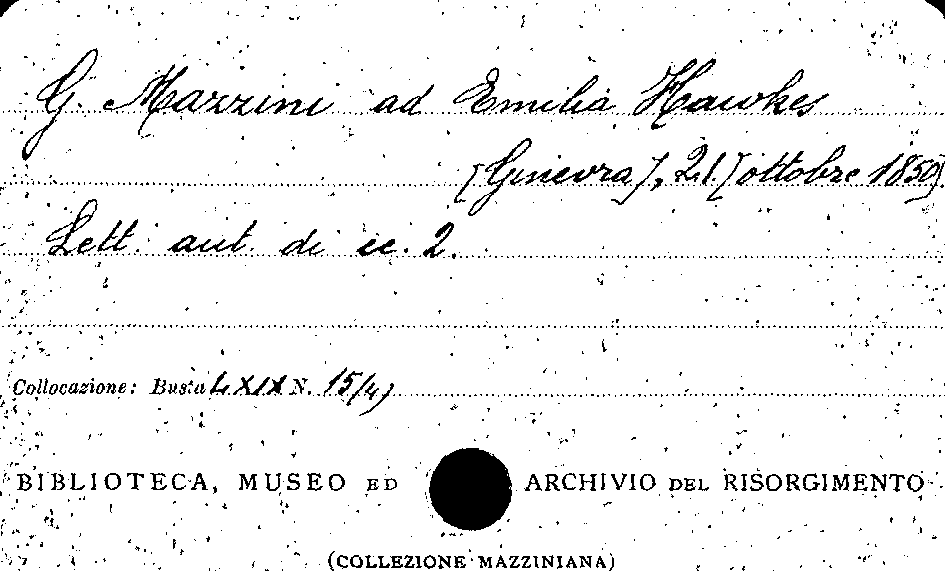 G. Mazzini ad Emilia Hawkes
[Ginevra], 21 [ottobre 1850].
Lett. aut. di cc. 2.
Collocazione: Busta LXIX N. 15/4)
BIBLIOTECA, MUSEO ED ARCHIVIO DEL RISORGIMENTO
(COLLEZIONE MAZZINIANA)